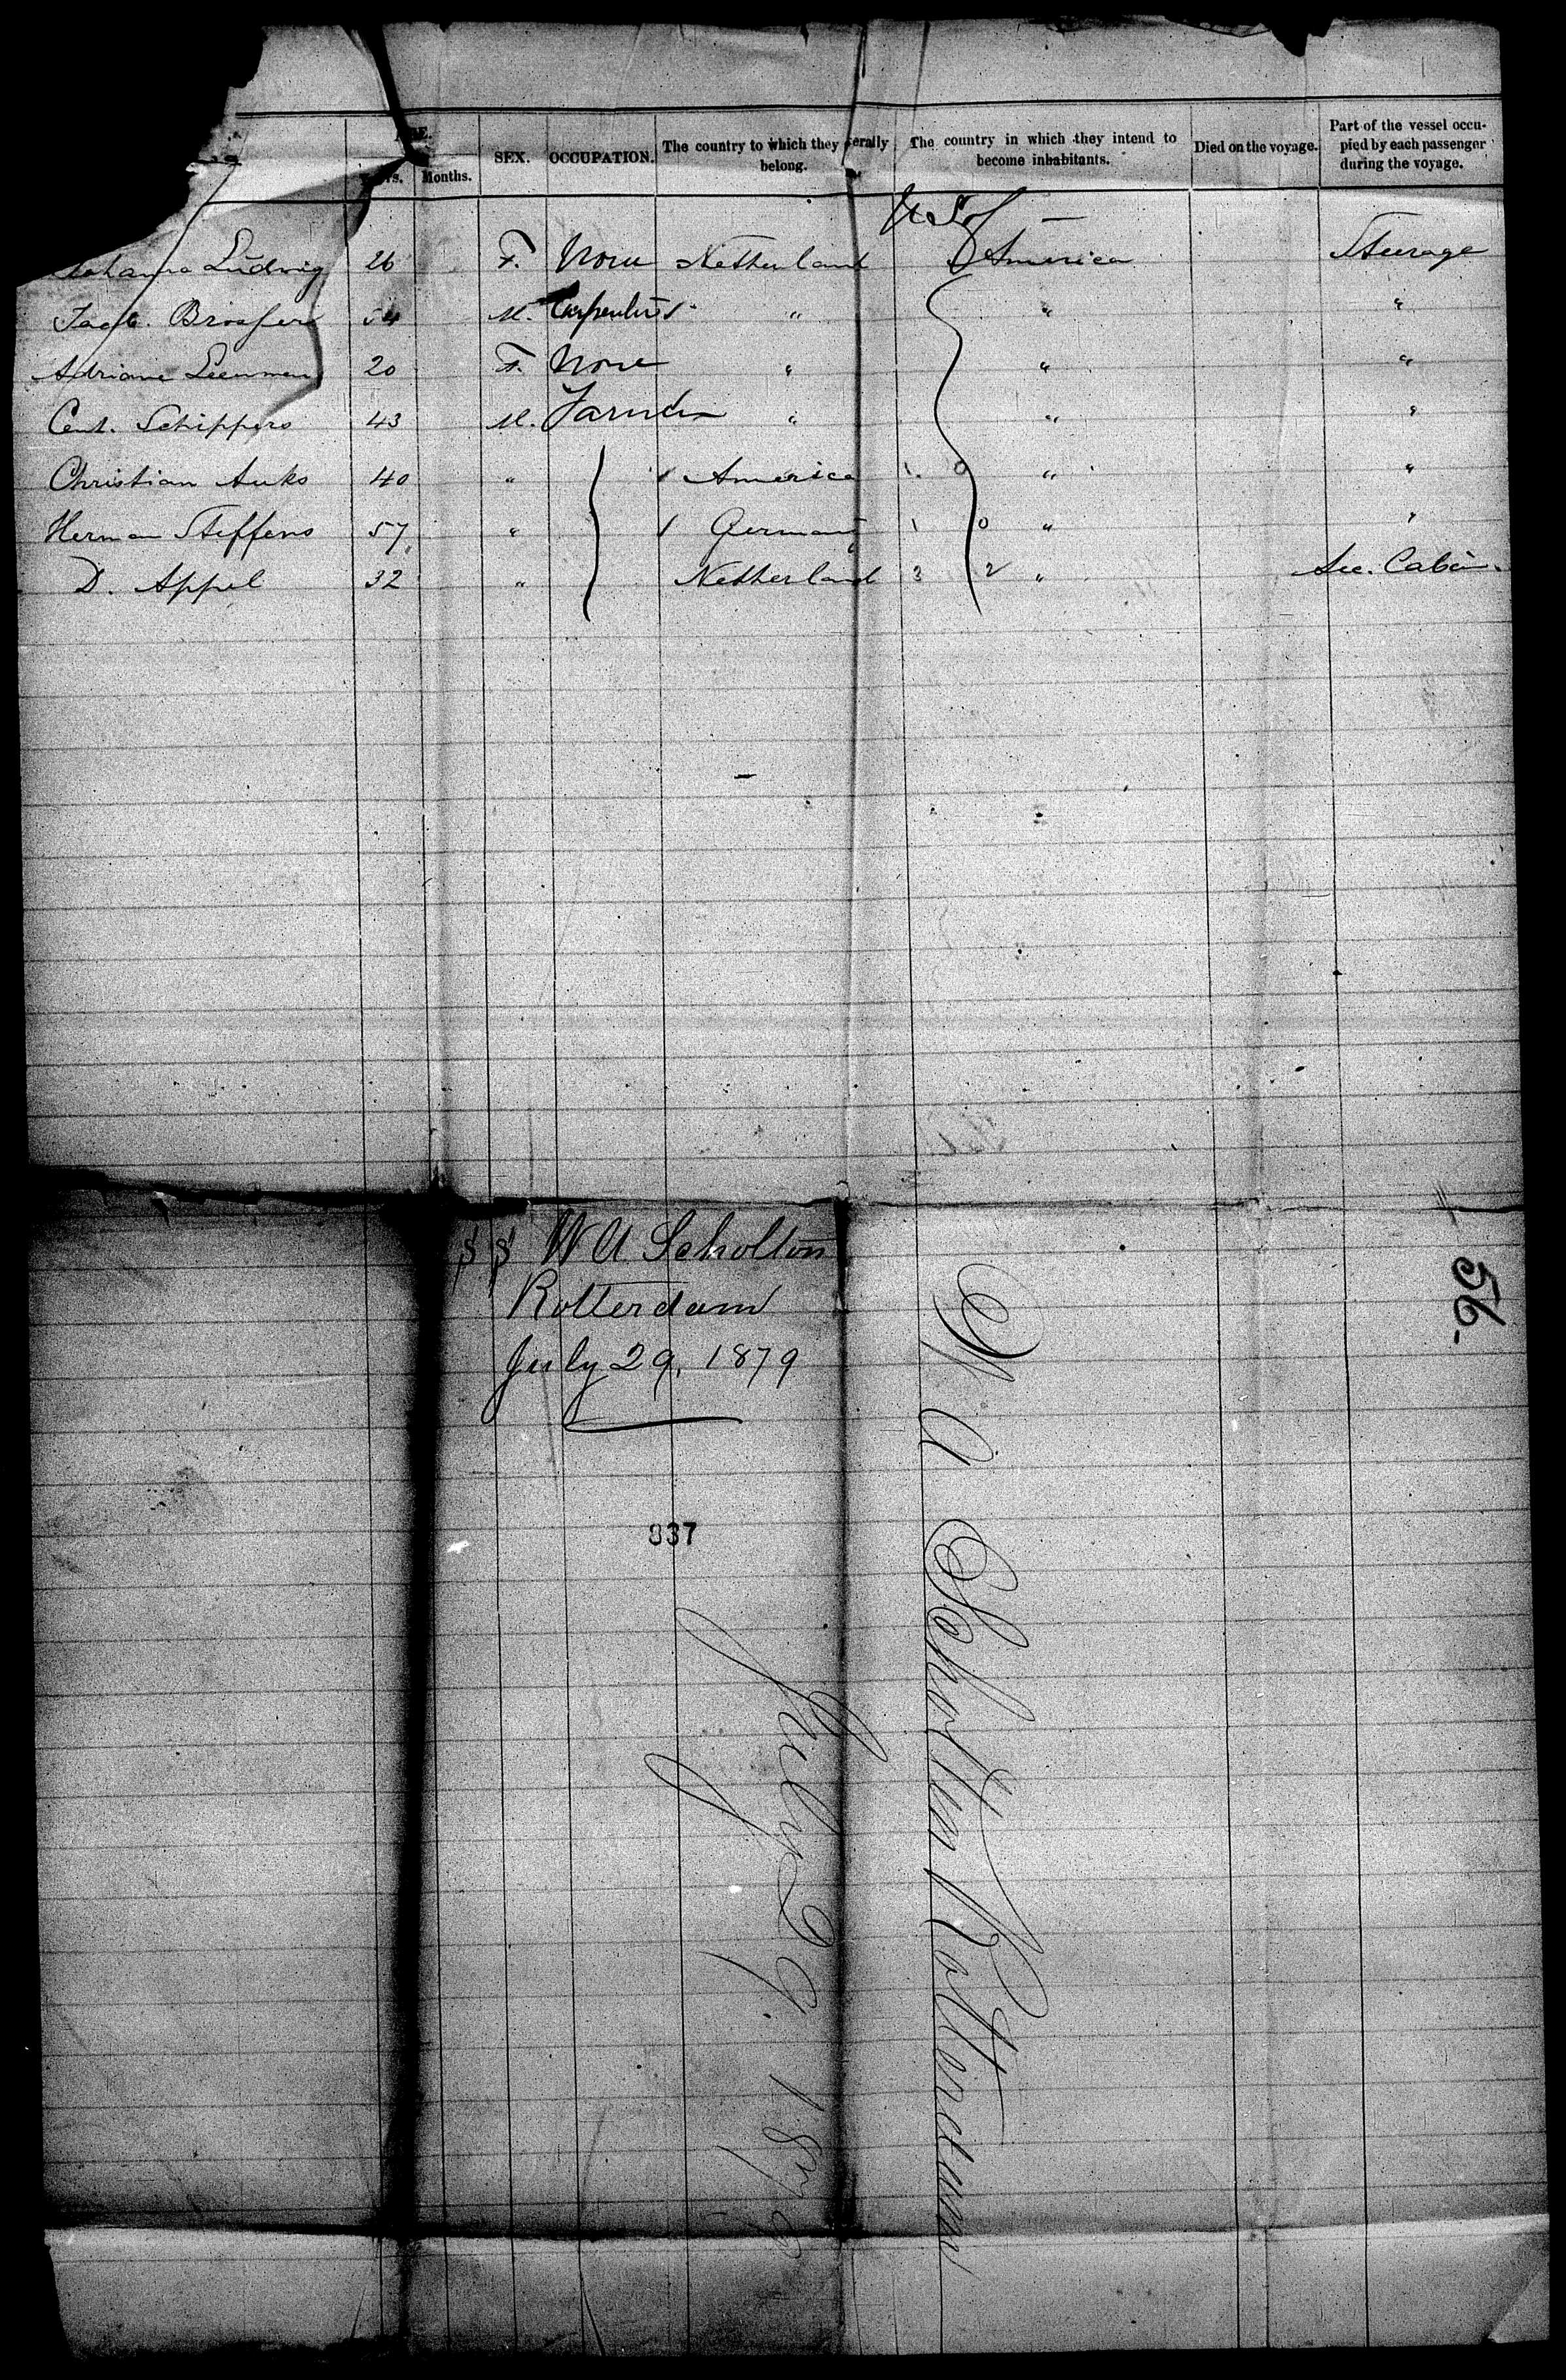 SEX. OCCUPATION. The country to which they severally belong. The country in which they intend to become inhabitants. Died on the voyage. Part of the vessel occupied by each passenger during the voyage.
Months.
U S of
Johanna Ludwig 26 F. None Netherland America Steerage
54 M. Carpenter " " "
Adriane 20 F. None " " "
Schippers 43 M. Farmer " " "
Christian Auks 40 " 1 America 1 0 " "
Herman Steffens 57 " 1 Germany 1 0 " "
D. Appel 32 " Netherland 3 2 " Sec. Cabin.
SS W A Scholten
Rotterdam
July 29, 1879
56-
837
W A Scholten Rotterdam
July 29. 1879